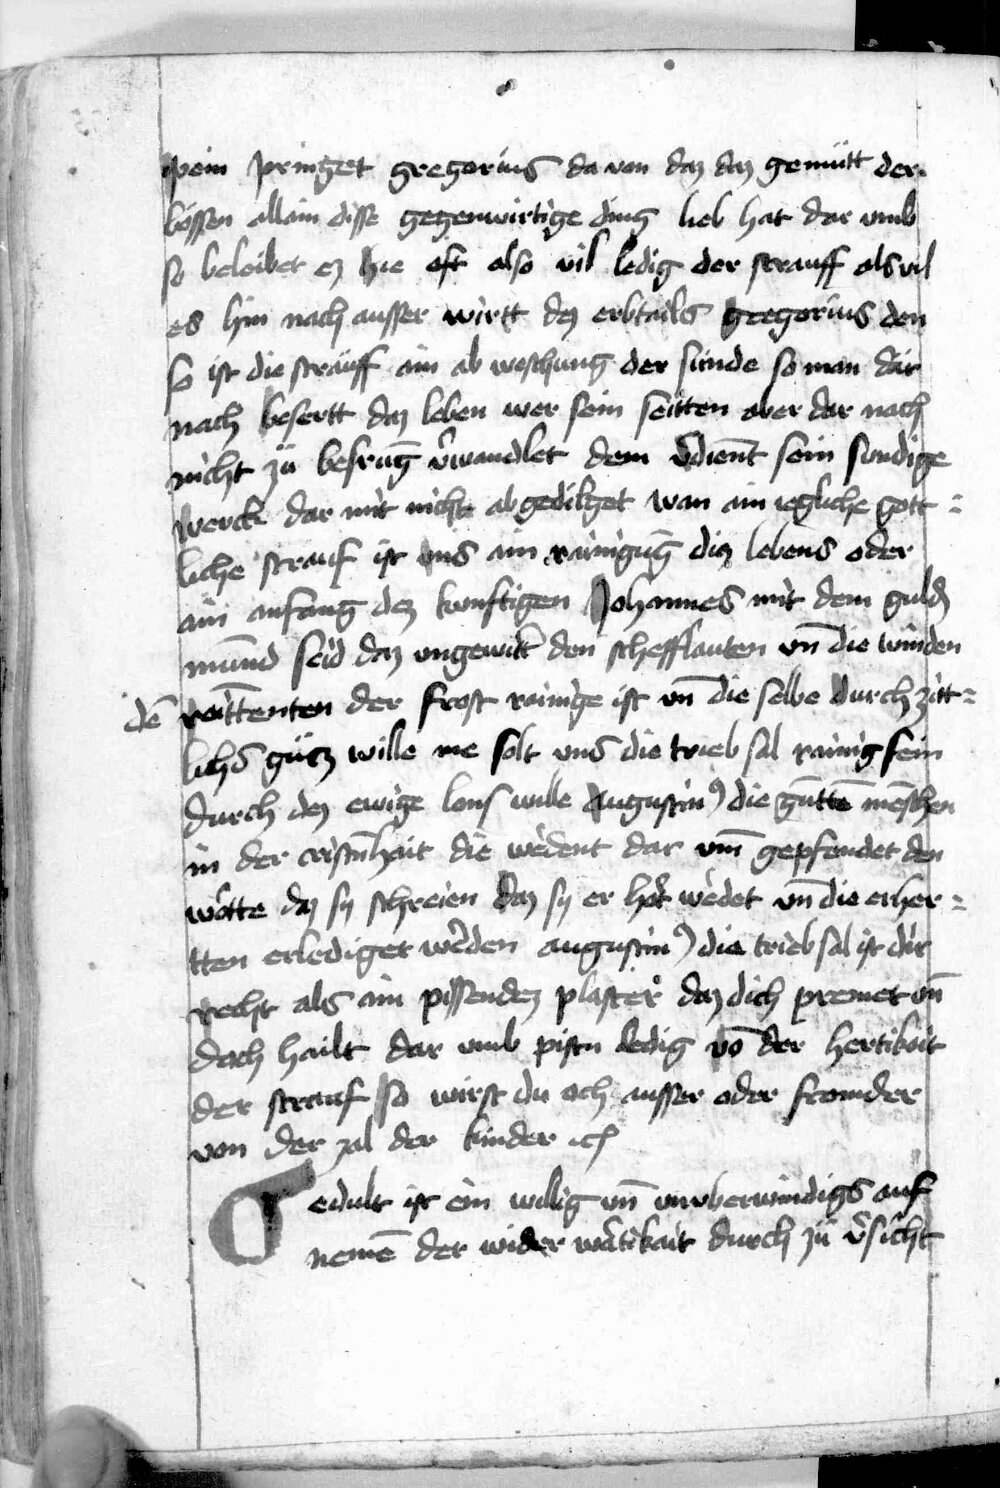 pein pringet gregorius da von daz daz gemütt der
bössen allain disse gegenwirtige ding lieb hat dar umb
so beleibet ez hie oft also vil ledig der strauff als vil
es hin nach ausser wirtt dez erbtails gregorius den
so ist die sträuff ain ab weschung der sunde so man dar
nach besertt daz leben wer sein seitten aber dar nach
nicht zü besrug̅ v̾wandlet dem v̾dient̅ sein sundige
werck dar mit nicht abgedilget wan ain iegliche gott=
liche strauf ist uns ain rainigug̅ diz lebens oder
ain anfang dez kunftigen Johannes mit dem guld̾
mund seid daz ungewit̾ den scheffläuten vn̅ die winden
de̅ rait̅tenten der frost rainige ist vn̅ die selbe durch zitt=
lichs gütz wille me solt uns die trieb sal rainig sein
durch dez ewige lons wille Augustin⁹ die gu̅tte̅ me̅schen
in der cristn̅hait die we̾dent dar vm̅ gepfendet den
wo̾tte daz sy schreien daz sy er ho̾t we̾det vn̅ die erher=
tten erlediget we̾den augustin⁹ die trieb sal ist dir
recht als ain pissendez plaster daz dich prennet vn̅
doch hailt dar umb pistu ledig vo̅ der hertikait
der strauf so wirst du och ausser oder fromder
von der zal der kinder ich
Gedult ist ein willig vn̅ unuberwindigs auf
neme̅ der wider wa̾tikait durch zü v̾sicht